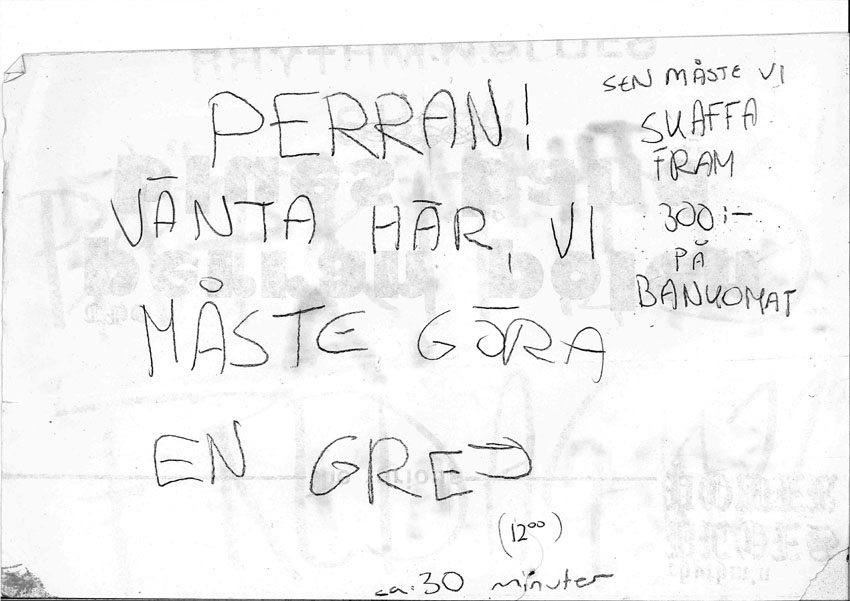 PERRAN!
VÄNTA HÄR, VI
MÅSTE GÖRA
EN GREJ
(12⁰⁰)
ca: 30 minuter
SEN MÅSTE VI
SKAFFA
FRAM
300:-
PÅ
BANKOMAT